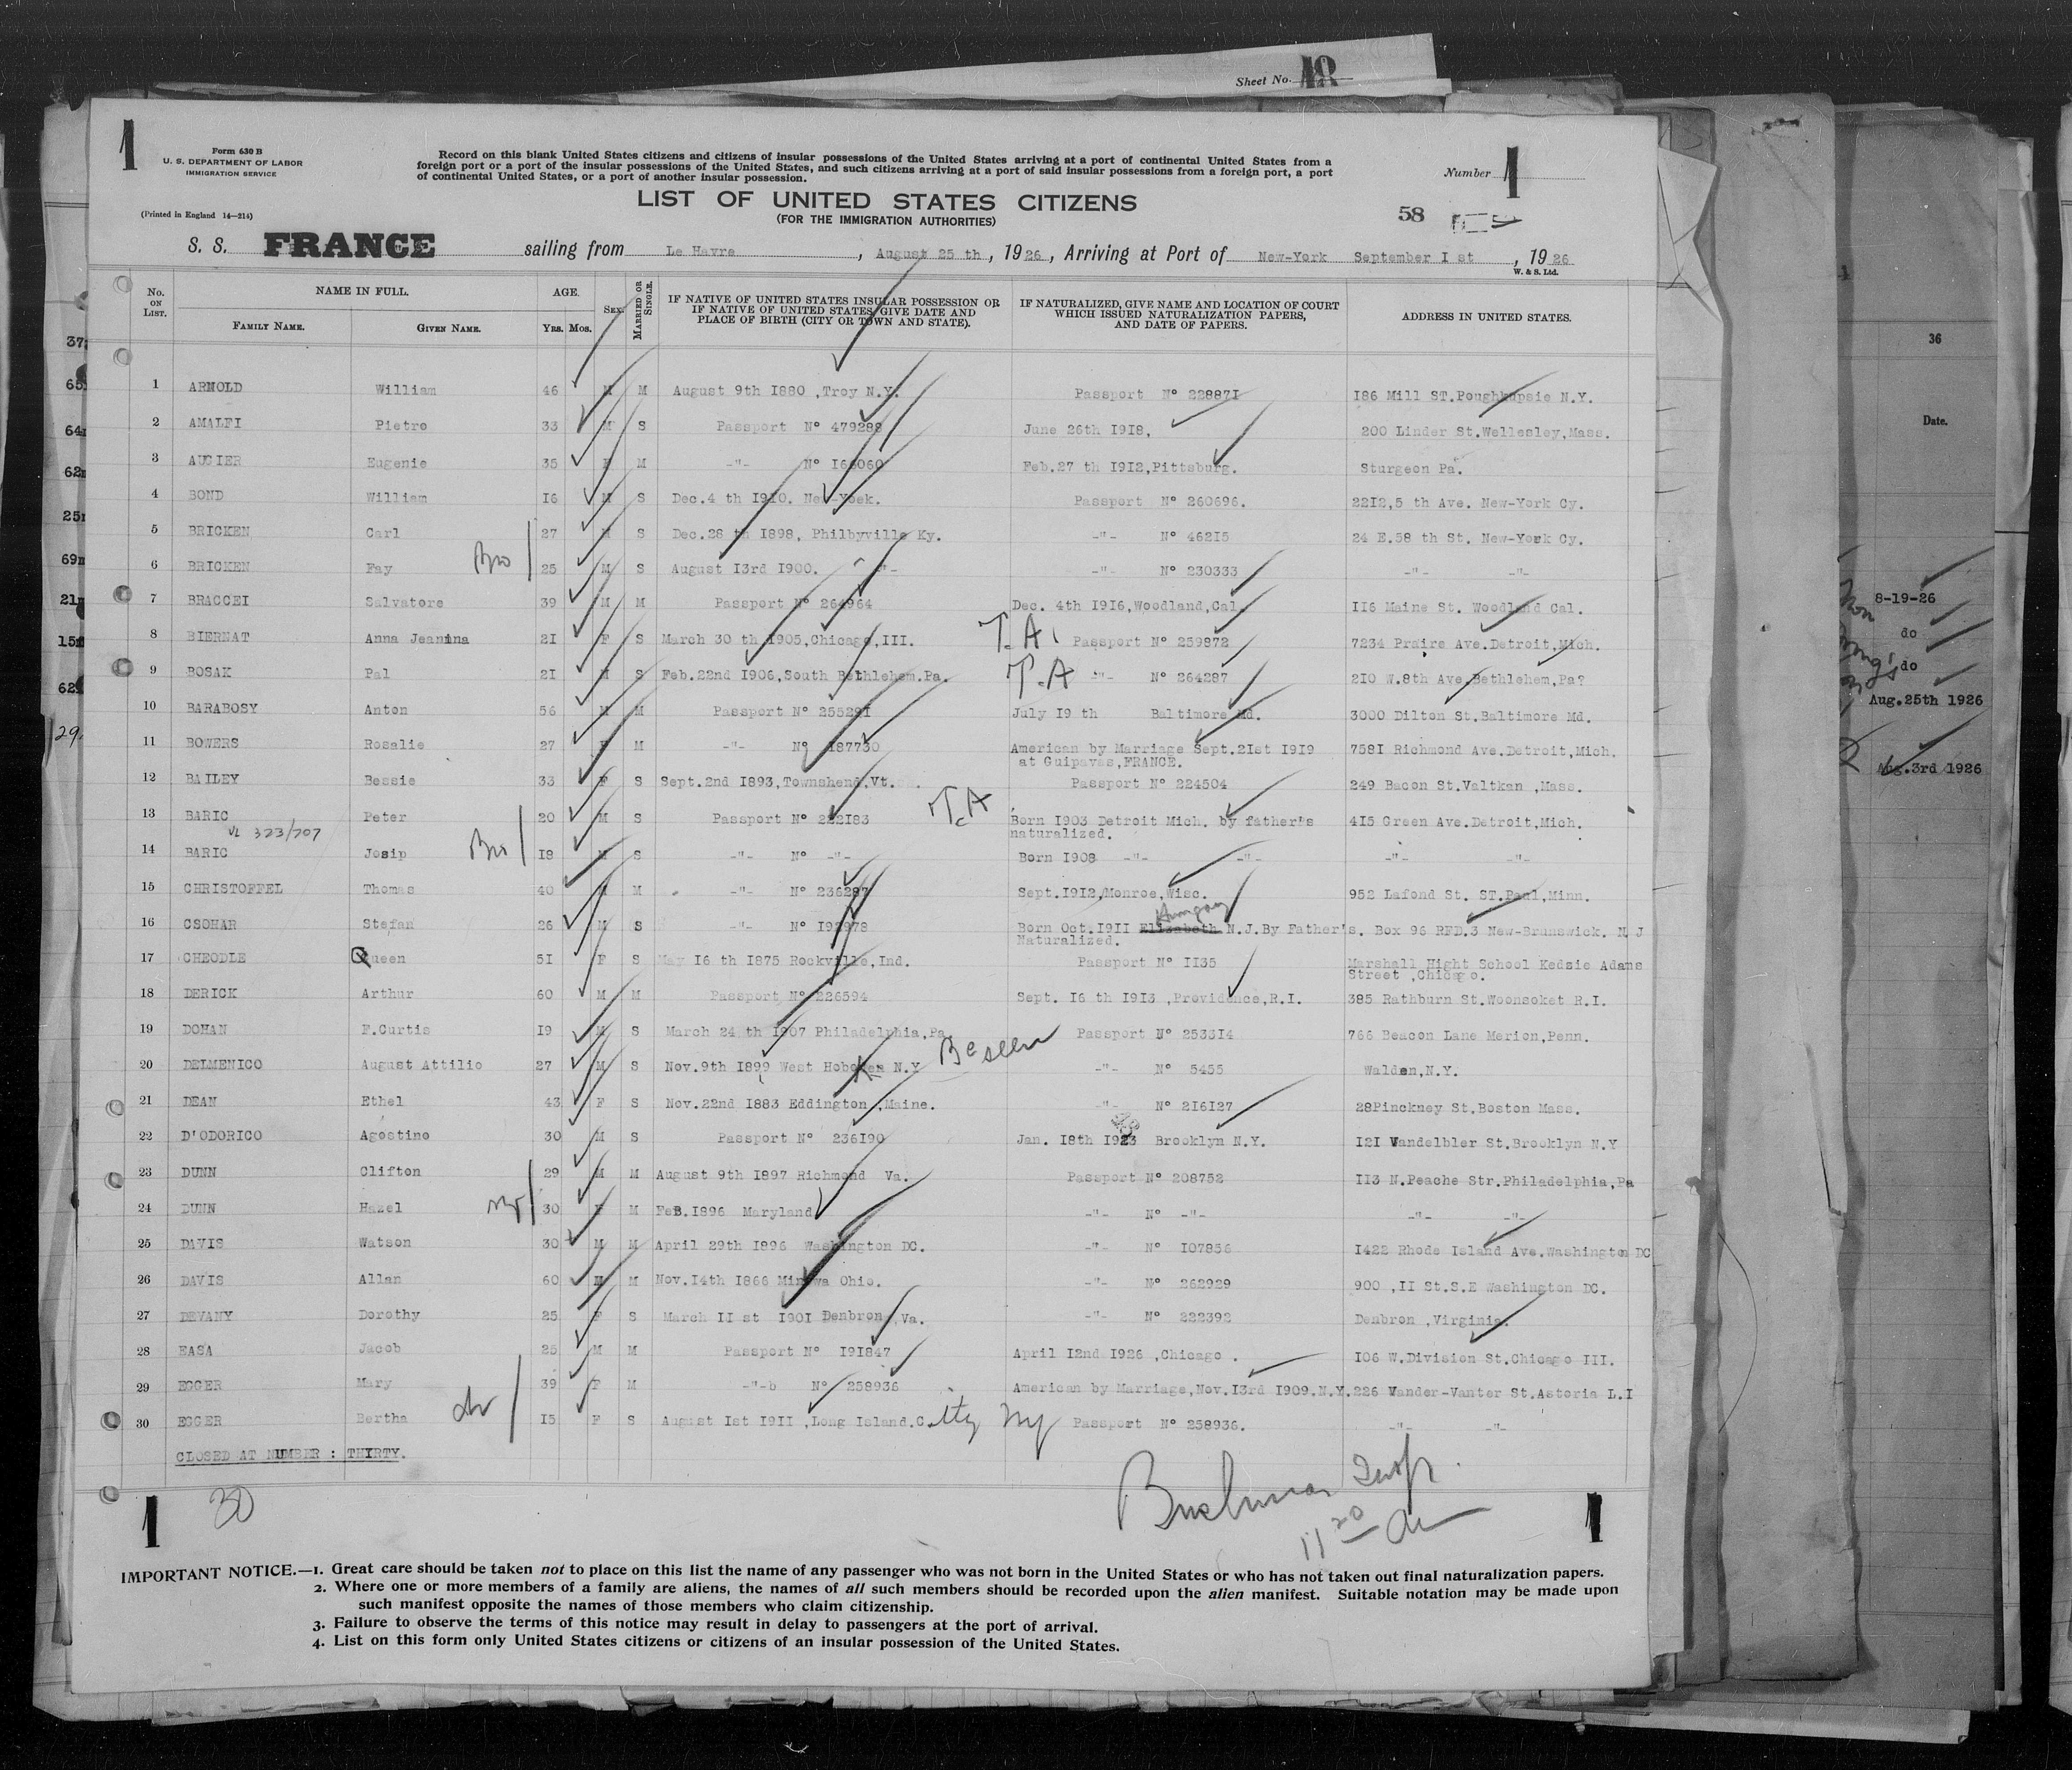 Sheet No. 18
1
Form 630 B
U. S. DEPARTMENT OF LABOR
IMMIGRATION SERVICE
(Printed in England 14—214)
Record on this blank United States citizens and citizens of insular possessions of the United States arriving at a port of continental United States from a
foreign port or a port of the insular possessions of the United States, and such citizens arriving at a port of said insular possessions from a foreign port, a port
of continental United States, or a port of another insular possession.
Number 1
LIST OF UNITED STATES CITIZENS
(FOR THE IMMIGRATION AUTHORITIES)
58
S. S. FRANCE sailing from Le Havre, August 25 th, 1926, Arriving at Port of New-York September I st, 1926
W. & S. Ltd.
No. ON LIST. NAME IN FULL. FAMILY NAME. GIVEN NAME. AGE. YRS. MOS. SEX. MARRIED OR SINGLE. IF NATIVE OF UNITED STATES INSULAR POSSESSION OR IF NATIVE OF UNITED STATES GIVE DATE AND PLACE OF BIRTH (CITY OR TOWN AND STATE). IF NATURALIZED, GIVE NAME AND LOCATION OF COURT WHICH ISSUED NATURALIZATION PAPERS, AND DATE OF PAPERS. ADDRESS IN UNITED STATES.
1 ARNOLD William 46 M M August 9th I880 ,Troy N.Y. Passport N° 22887I I86 Mill ST.Poughkupsie N.Y.
2 AMALFI Pietro 33 M S Passport N° 479288 June 26th I9I8, 200 Linder St.Wellesley,Mass.
3 AUGIER Eugenie 35 F M -"- N° I66060 Feb.27 th I9I2,Pittsburg. Sturgeon Pa.
4 BOND William I6 M S Dec.4 th I9I0. New-Yoek. Passport N° 260696. 22I2,5 th Ave. New-York Cy.
5 BRICKEN Carl 27 M S Dec.28 th I898, Philbyville Ky. -"- N° 462I5 24 E.58 th St. New-York Cy.
Bro
6 BRICKEN Fay 25 M S August I3rd I900. -"- -"- N° 230333 -"- -"-
7 BRACCEI Salvatore 39 M M Passport N° 264964 Dec. 4th I9I6,Woodland,Cal. II6 Maine St. Woodland Cal.
8 BIERNAT Anna Jeanina 2I F S March 30 th I905,Chicago,III. T.A. Passport N° 259872 7234 Praire Ave.Detroit,Mich.
9 BOSAK Pal 2I M S Feb.22nd I906,South Bethlehem.Pa. T.A -"- N° 264287 2I0 W.8th Ave,Bethlehem,Pa?
10 BARABOSY Anton 56 M M Passport N° 25529I July I9 th Baltimore Md. 3000 Dilton St.Baltimore Md.
11 BOWERS Rosalie 27 F M -"- N° I87730 American by Marriage Sept.2Ist I9I9 758I Richmond Ave.Detroit,Mich.
at Guipavas,FRANCE.
12 BAILEY Bessie 33 F S Sept.2nd I893,Townshend,Vt. Passport N° 224504 249 Bacon St.Valtkan ,Mass.
13 BARIC Peter 20 M S Passport N° 222I83 T.A Born I903 Detroit Mich. by father's 4I5 Green Ave.Detroit,Mich.
VL 323/707 naturalized.
Bro
14 BARIC Josip I8 M S -"- N° -"- Born I908 -"- -"- -"- -"-
15 CHRISTOFFEL Thomas 40 M M -"- N° 236287 Sept.I9I2,Monroe,Wisc. 952 Lafond St. ST.Paul,Minn.
Hungary
16 CSOHAR Stefan 26 M S -"- N° I92978 Born Oct.I9II Elizabeth N.J.By Father's. Box 96 RFD.3 New-Brunswick. N J
Naturalized.
17 CHEODLE Queen 5I F S May I6 th I875 Rockville,Ind. Passport N° II35 Marshall Hight School Kedzie Adams
Street ,Chicago.
18 DERICK Arthur 60 M M Passport N° 226594 Sept. I6 th I9I3 ,Providence,R.I. 385 Rathburn St.Woonsoket R.I.
19 DOHAN F.Curtis I9 M S March 24 th I907 Philadelphia,Pa Passport N° 2533I4 766 Beacon Lane Merion,Penn.
20 DELMENICO August Attilio 27 M S Nov.9th I899 West Hoboken N.Y -"- N° 5455 Walden,N.Y.
21 DEAN Ethel 43 F S Nov.22nd I883 Eddington ,Maine. -"- N° 2I6I27 28Pinckney St.Boston Mass.
22 D'ODORICO Agostino 30 M S Passport N° 236I90 Jan. I8th I923 Brooklyn N.Y. I2I Vandelbler St.Brooklyn N.Y
23 DUNN Clifton 29 M M August 9th I897 Richmond Va. Passport N° 208752 II3 N.Peache Str.Philadelphia,Pa
24 DUNN Hazel 30 F M FeB.I896 Maryland -"- N° -"- -"- -"-
25 DAVIS Watson 30 M M April 29th I896 Washington DC. -"- N° I07836 I422 Rhode Island Ave.Washington DC
26 DAVIS Allan 60 M M Nov.I4th I866 Minewa Ohio. -"- N° 262929 900 ,II St.S.E Washington DC.
27 DEVANY Dorothy 25 F S March II st I90I Denbron,Va. -"- N° 222392 Denbron ,Virginia.
28 EASA Jacob 25 M M Passport N° I9I847 April I2nd I926 ,Chicago . I06 W.Division St.Chicago III.
29 EGGER Mary 39 F M -"-b N° 258936 American by Marriage,Nov.I3rd I909.N.Y. 226 Vander-Vanter St.Astoria L.I
30 EGGER Bertha I5 F S August Ist I9II ,Long Island.City NY Passport N° 258936. -"- -"-
CLOSED AT NUMBER : THIRTY.
1 30 1
11 20 am
IMPORTANT NOTICE.—1. Great care should be taken not to place on this list the name of any passenger who was not born in the United States or who has not taken out final naturalization papers.
2. Where one or more members of a family are aliens, the names of all such members should be recorded upon the alien manifest. Suitable notation may be made upon
such manifest opposite the names of those members who claim citizenship.
3. Failure to observe the terms of this notice may result in delay to passengers at the port of arrival.
4. List on this form only United States citizens or citizens of an insular possession of the United States.
36
Date.
8-19-26
do
do
Aug.25th 1926
Aug.3rd 1926